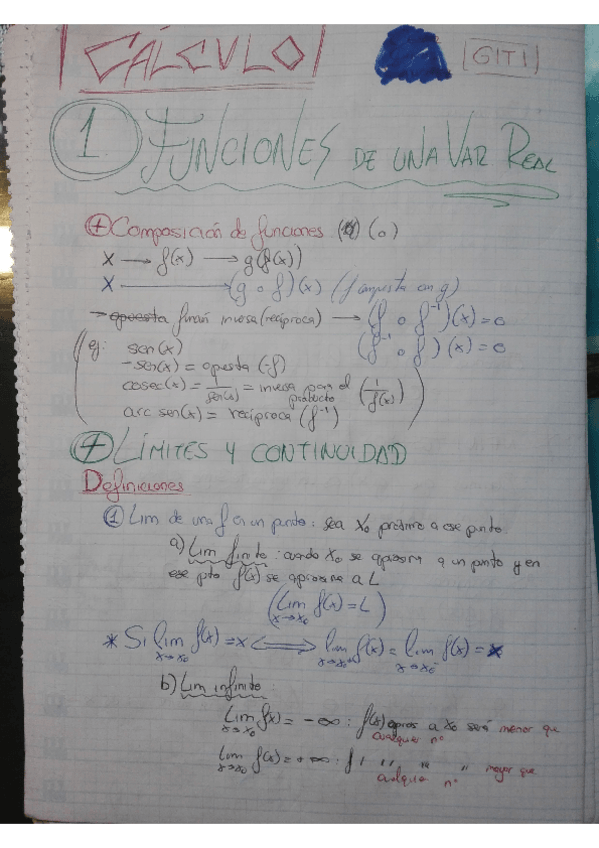 CÁLCULO |GITI|
1 FUNCIONES DE UNA VAR REAL
+ Composición de funciones (o)
X → f(x) → g(f(x))
X → (g o f)(x) (f compuesta con g)
→ opuesta función inversa (recíproca) → (f o f⁻¹)(x) = o
(f⁻¹ o f)(x) = o
ej: sen(x)
-sen(x) = opuesta (-f)
cosec(x) = 1/sen(x) = inversa para el producto (1/f(x))
arc sen(x) = recíproca (f⁻¹)
+ LÍMITES Y CONTINUIDAD
Definiciones
1 Lim de una f en un punto: sea x₀ próximo a ese punto
a) Lim finito: cuando x₀ se aproxima a un punto y en
ese pto f(x) se aproxima a L
(Lim x→x₀ f(x) = L)
* Si lim x→x₀ f(x) = x ⟺ lim x→x₀⁺ f(x) = lim x→x₀⁻ f(x) = x
b) Lim infinito:
Lim x→x₀ f(x) = -∞ : f(x) aprox a x₀ será menor que
cualquier nº
Lim x→x₀ f(x) = +∞ : f " " " " mayor que
cualquier nº